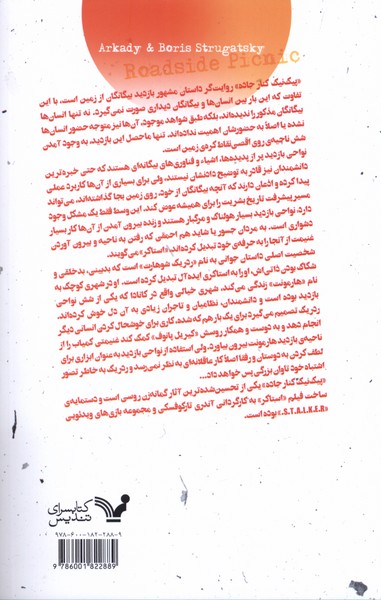 Arkady & Boris Strugatsky
Roadside Picnic
«پیک‌نیک کنار جاده» روایت‌گر داستان مشهور بازدید بیگانگان از زمین است، با این
تفاوت که این بار بین انسان‌ها و بیگانگان دیداری صورت نمی‌گیرد. نه تنها انسان‌ها
بیگانگان مذکور را ندیده‌اند، بلکه طبق شواهد موجود، آن‌ها نیز متوجه حضور انسان‌ها
نشده یا اصلاً به حضورشان اهمیت نداده‌اند. تنها ماحصل این بازدید، به وجود آمدن
شش ناحیه‌ی روی اقصی نقاط کره‌ی زمین است.
نواحی بازدید پر از پدیده‌ها، اشیاء و فناوری‌های بیگانه‌ای هستند که حتی خبره‌ترین
دانشمندان نیز قادر به توضیح دادنشان نیستند، ولی برای بسیاری از آن‌ها کاربرد عملی
پیدا کرده و اذعان دارند که آنچه بیگانگان از خود، روی زمین بجا گذاشته‌اند، می‌تواند
مسیر پیشرفت تاریخ بشریت را برای همیشه عوض کند. این وسط فقط یک مشکل وجود
دارد. نواحی بازدید بسیار هولناک و مرگبار هستند و زنده بیرون آمدن از آن‌ها کار بسیار
دشواری است. به مردان جسور یا شاید هم احمقی که رفتن به ناحیه و بیرون آوردن
غنیمت از آنجا را به حرفه‌ی خود تبدیل کرده‌اند، «استاکر» می‌گویند.
شخصیت اصلی داستان جوانی به نام «ردریک شوهارت» است که بدبینی، بدخلقی و
شکاک بودن ذاتی‌اش، او را به استاکری ایده‌آل تبدیل کرده است. او در شهری کوچک به
نام «هارمونت» زندگی می‌کند، شهری خیالی واقع در کانادا که یکی از شش نواحی
بازدید بوده است و دانشمندان، نظامیان و تاجران زیادی به آن دل خوش کرده‌اند.
ردریک تصمیم می‌گیرد برای یک بار هم که شده، کاری برای خوشحال کردن انسانی دیگر
انجام دهد و به دوست و همکار روسش «کیریل پانوف» کمک کند غنیمتی کمیاب را از
ناحیه‌ی بازدید هارمونت بیرون بیاورد. ولی استفاده از نواحی بازدید به عنوان ابزاری برای
لطف کردن به دوستان و رفقا اصلاً کار عاقلانه‌ای به نظر نمی‌رسد و ردریک به خاطر تصور
اشتباه خود تاوان بزرگی پس خواهد داد...
«پیک‌نیک کنار جاده» یکی از تحسین‌شده‌ترین آثار گمانه‌زن روسی است و دستمایه‌ی
ساخت فیلم «استاکر» به کارگردانی آندری تارکوفسکی و مجموعه بازی‌های ویدئویی
«S.T.A.L.K.E.R» بوده است.
کتابسرای
تندیس
۹۷۸-۶۰۰-۱۸۲-۲۸۸-۹
9 786001 822889